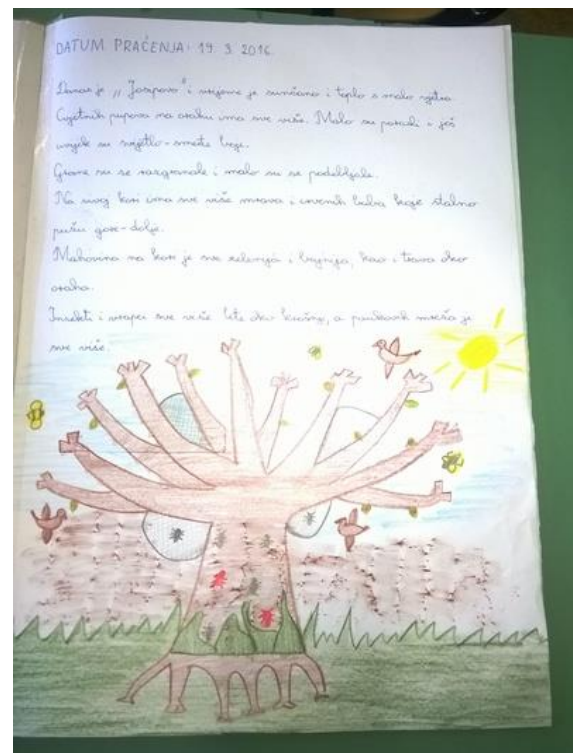 DATUM PRAĆENJA: 19. 3. 2016.
Danas je „Josipovo" i vrijeme je sunčano i toplo s malo vjetra.
Cvjetnih pupova na orahu ima sve više. Malo su porasli i još
uvijek su svijetlo-smeđe boje.
Grane su se razgranale i malo su se podebljale.
Na ovoj kori ima sve više mrava i crvenih buba koje stalno
pužu gore-dolje.
Mahovina na kori je sve zelenija i bujnija, kao i trava oko
oraha.
Insekti i vrapci sve više lete oko krošnje, a paukovih mreža je
sve više.